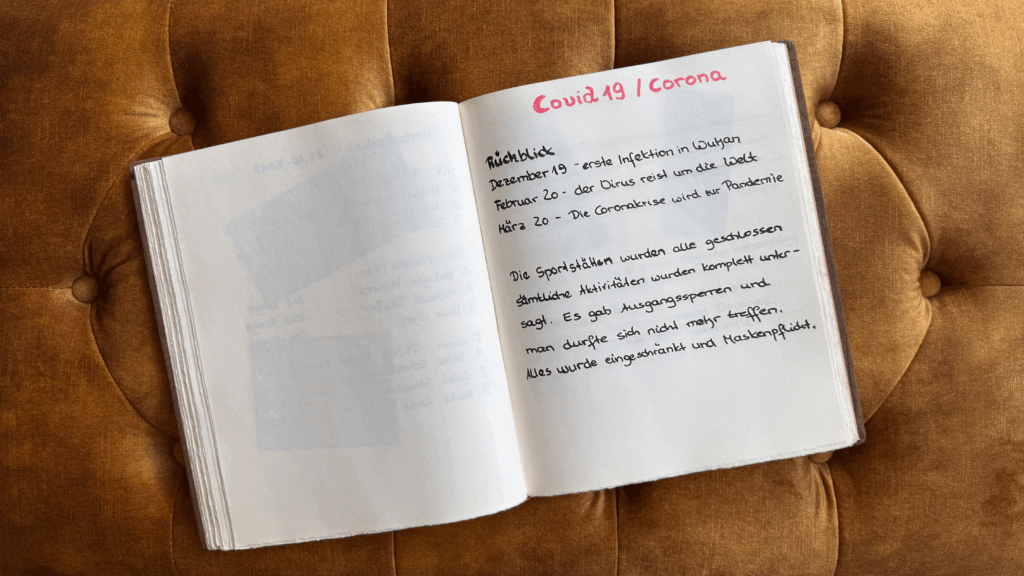 Covid 19 / Corona
Rückblick
Dezember 19 - erste Infektion in Wuhan
Februar 20 - der Virus reist um die Welt
März 20 - Die Coronakrise wird zur Pandemie
Die Sportstätten wurden alle geschlossen
sämtliche Aktivitäten wurden komplett unter-
sagt. Es gab Ausgangssperren und
man durfte sich nicht mehr treffen.
Alles wurde eingeschränkt und Maskenpflicht.